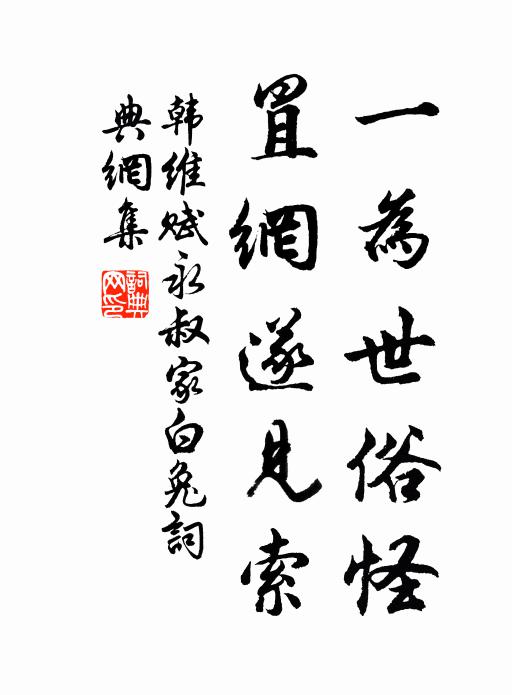 一為世俗怪
罝網遂見索
韩維赋永叔家白兔詞
典網集
詞典网印